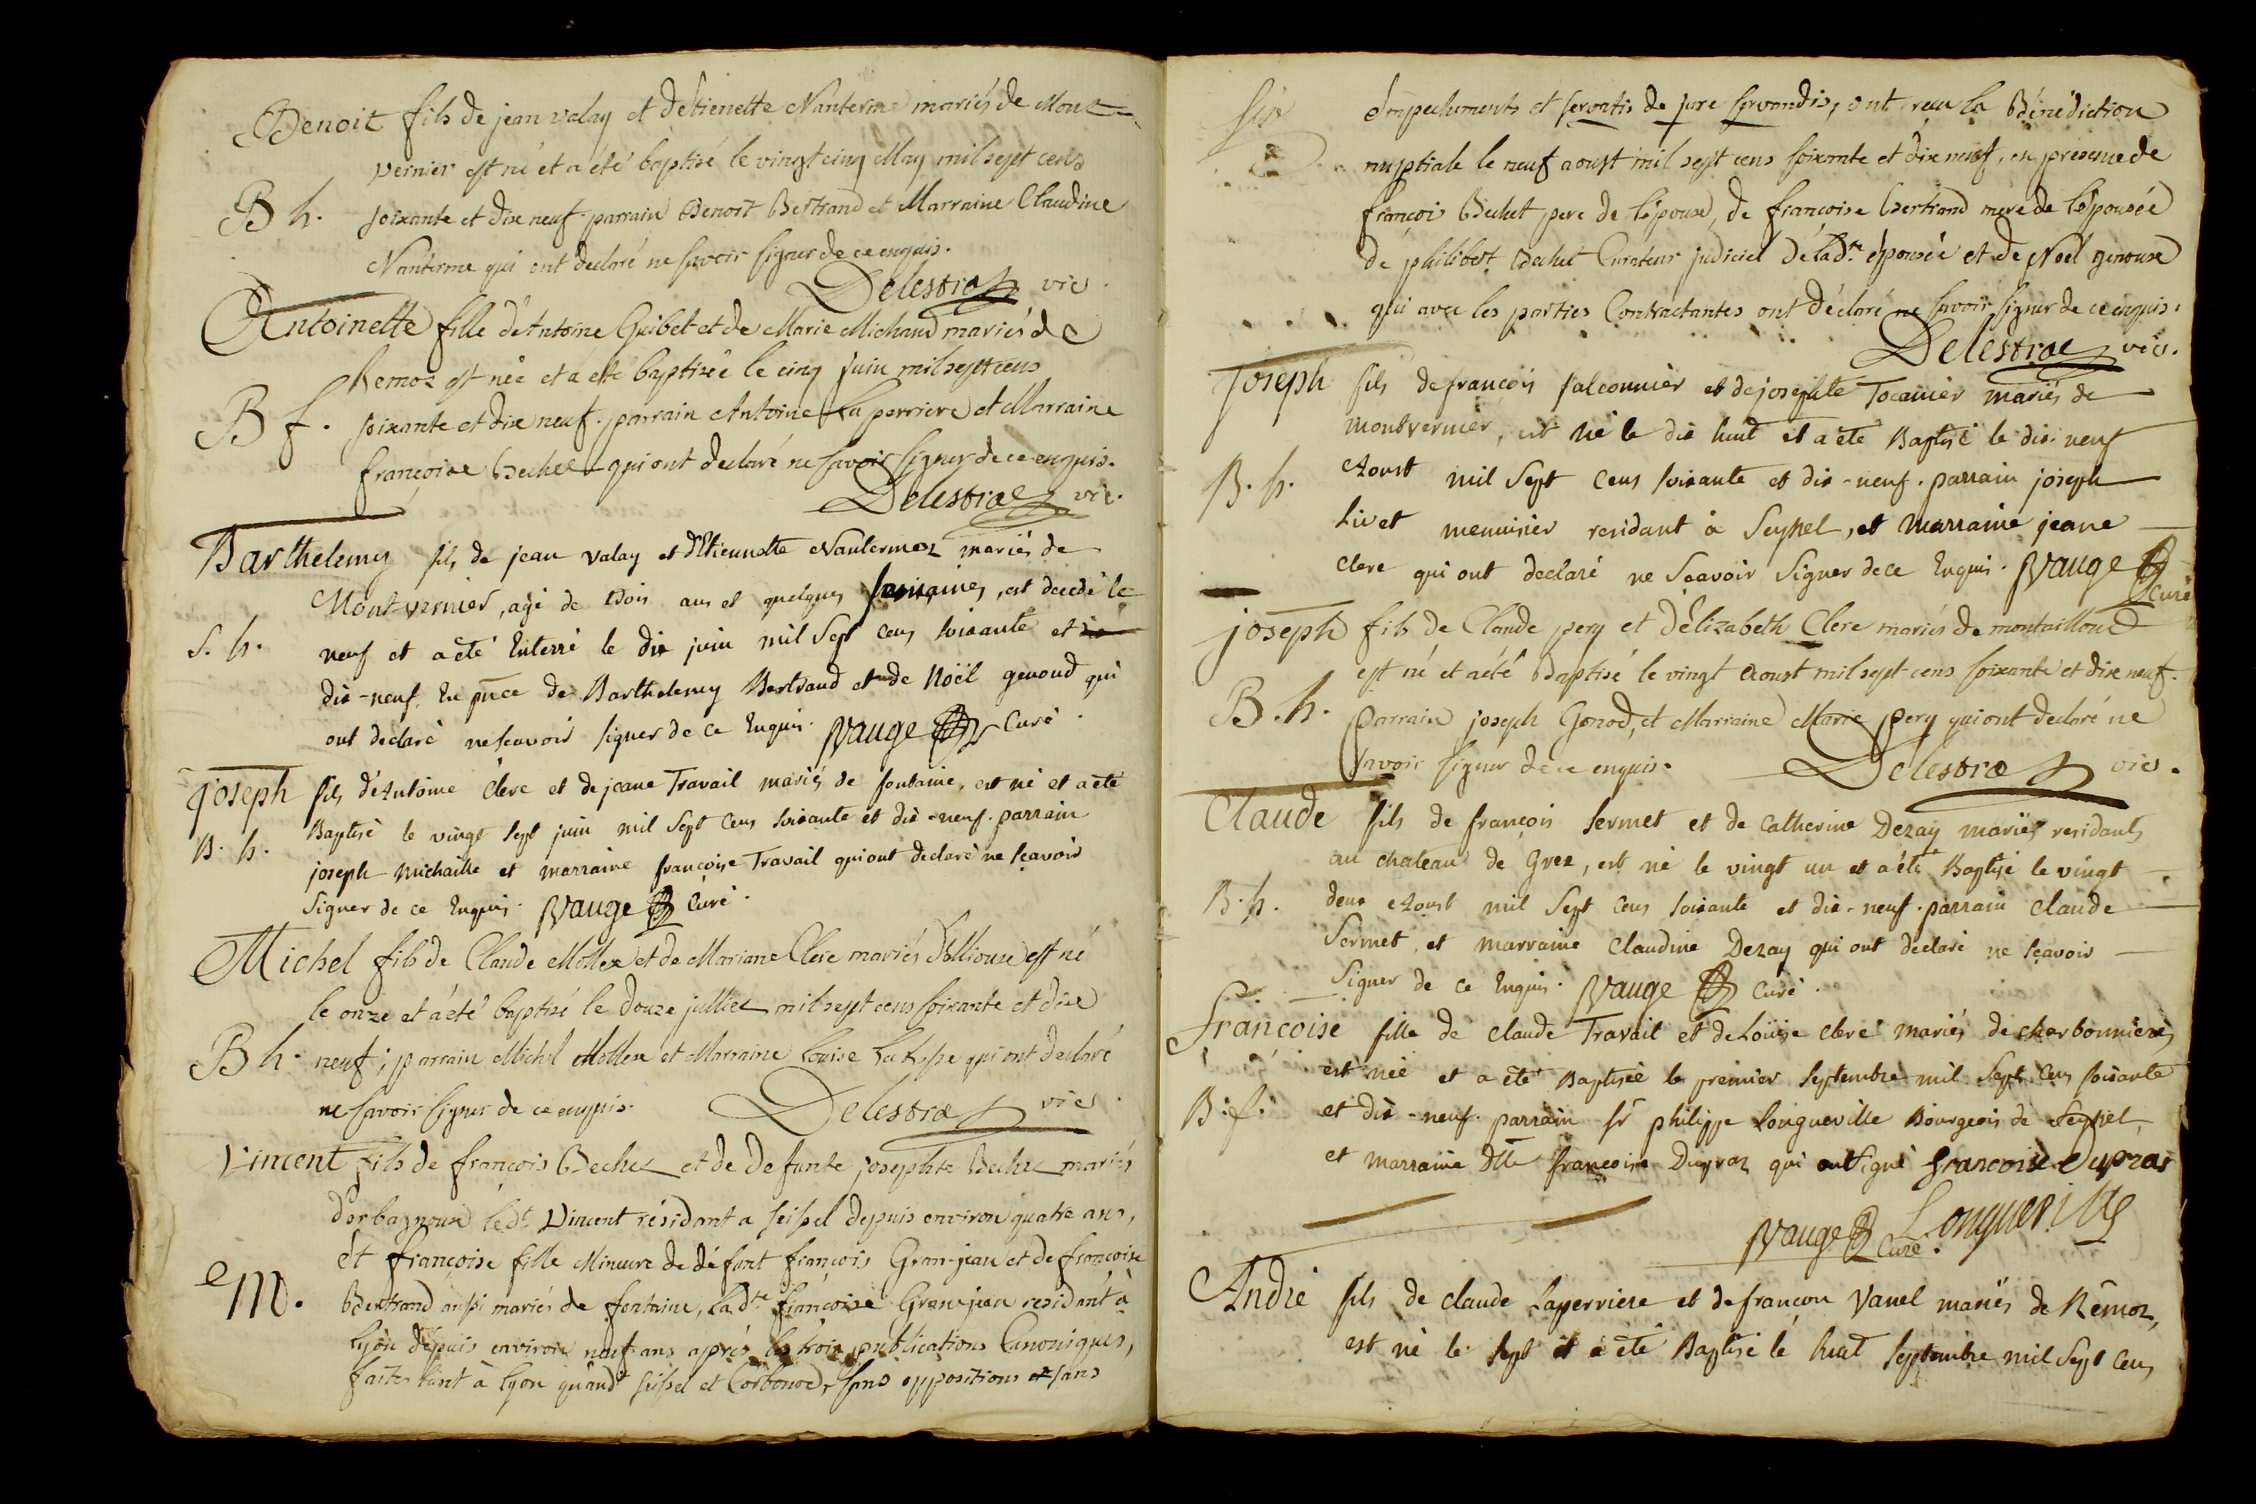 Benoit fils de jean valay et détienette Nanterme mariés de Mont-
vernier est né et a été baptisé le vingt cinq May mil sept cens
B h. soixante et dix neuf. parrain Benoit Bertrand et Marraine Claudine
Nanterme qui ont declaré ne savoir signer de ce enquis.
Delestra vic.
Antoinette fille d'Antoine Guibet et de Marie Michaud mariés de
Remoz est née et a été baptisée le cinq juin mil sept cens
B f. soixante et dix neuf. parrain Antoine La perriere et Marraine
françoise Bechet qui ont declaré ne savoir signer de ce enquis.
Delestra vic.
Barthelemy fils de jean valay et d'Etiennette Nantermoz mariés de
Mont-vernier, agé de trois ans et quelques semaines, est decedé le
S. h. neuf et a été Enterré le dix juin mil Sept cens soixante et
dix-neuf. En pnce de Barthelemy Bertrand et de Noël genoud qui
ont declaré ne scavoir signer de ce Enquis. Vauge Curé.
joseph fils d'Antoine Clerc et de jeane Travail mariés de fontaine, est né et a été
B. h. Baptisé le vingt sept juin mil Sept Cens soixante et dix-neuf. parrain
joseph Michaille et marraine françoise Travail qui ont declaré ne sçavoir
Signer de ce Enquis. Vauge Curé.
Michel fils de Claude Mollex et de Mariane Clerc mariés est né
le onze et a été baptisé le Douze julliet mil sept cens soixante et dix
B h. neuf; parrain Michel Mollex et Marraine Louise qui ont declaré
ne savoir signer de ce enquis. Delestra vic.
Vincent fils de françois Bechet et de defunte josephte Bechet mariés
d'orbagnoux led.t Vincent résidant a seissel depuis environ quatre ans,
et françoise fille Mineure de défunt françois Gran-jean et de françoise
M. Bertrand aussi mariés de fontaine, lad.te françoise Gran-jean residant à
lyon depuis environ neuf ans aprés les trois publications Canoniques,
faites tant à lyon quand seissel et Corbonod, sans oppositions et sans
six
émpechements et servatis de jure servandis, ont reçu la Bénédiction
nuptiale le neuf aoust mil sept cens soixante et dix neuf, en présence de
françois Bechet pere de l'époux, de françoise Bertrand mere de l'épousée
de philibert Bechet Curateur judiciel dé lad.te épousée et de Noël genoux
qui avec les parties Contractantes ont déclaré ne savoir signer de ce enquis.
Delestrae vic.
Joseph fils de françois falconnier et de josephte Tocanier mariés de
montvernier, est né le dix huit et a été Baptisé le dix neuf
B. h. Aoust mil Sept Cens soixante et dix-neuf. parrain joseph
Livet menuisier residant à Seyssel, et marraine jeane
Clerc qui ont declaré ne Scavoir Signer de ce Enquis. Vauge
Curé
joseph fils de Claude pery et d'Elizabeth Clerc mariés de montailloud
est né et a été Baptisé le vingt Aoust mil sept cens soixante et dix neuf.
B. h. Parrain joseph Gonod, et Marraine Marie pery qui ont declaré ne
savoir signer de ce enquis. Delestra vic.
Claude fils de françois Sermet et de Catherine Dezay mariés residants
au chateau de Grez, est né le vingt un et a été Baptisé le vingt
B. h. deux Aoust mil Sept Cens soixante et dix-neuf. parrain Claude
Sermet, et marraine Claudine Dezay qui ont declaré ne sçavoir
Signer de ce Enquis. Vauge Curé.
françoise fille de claude Travail et de Loüise clerc mariés de charbonniere,
est née et a été Baptisée le premier septembre mil Sept Cens soixante
B. f. et dix-neuf. parrain sr philippe Longueville Bourgeois de Seyssel
et marraine dlle françoise Dupraz qui ont signé francoise Dupras
Longueville
Vauge Curé.
André fils de claude Laperriere et de françon Vanel mariés de Rémoz,
est né le sept et a été Baptisé le huit septembre mil Sept Cens